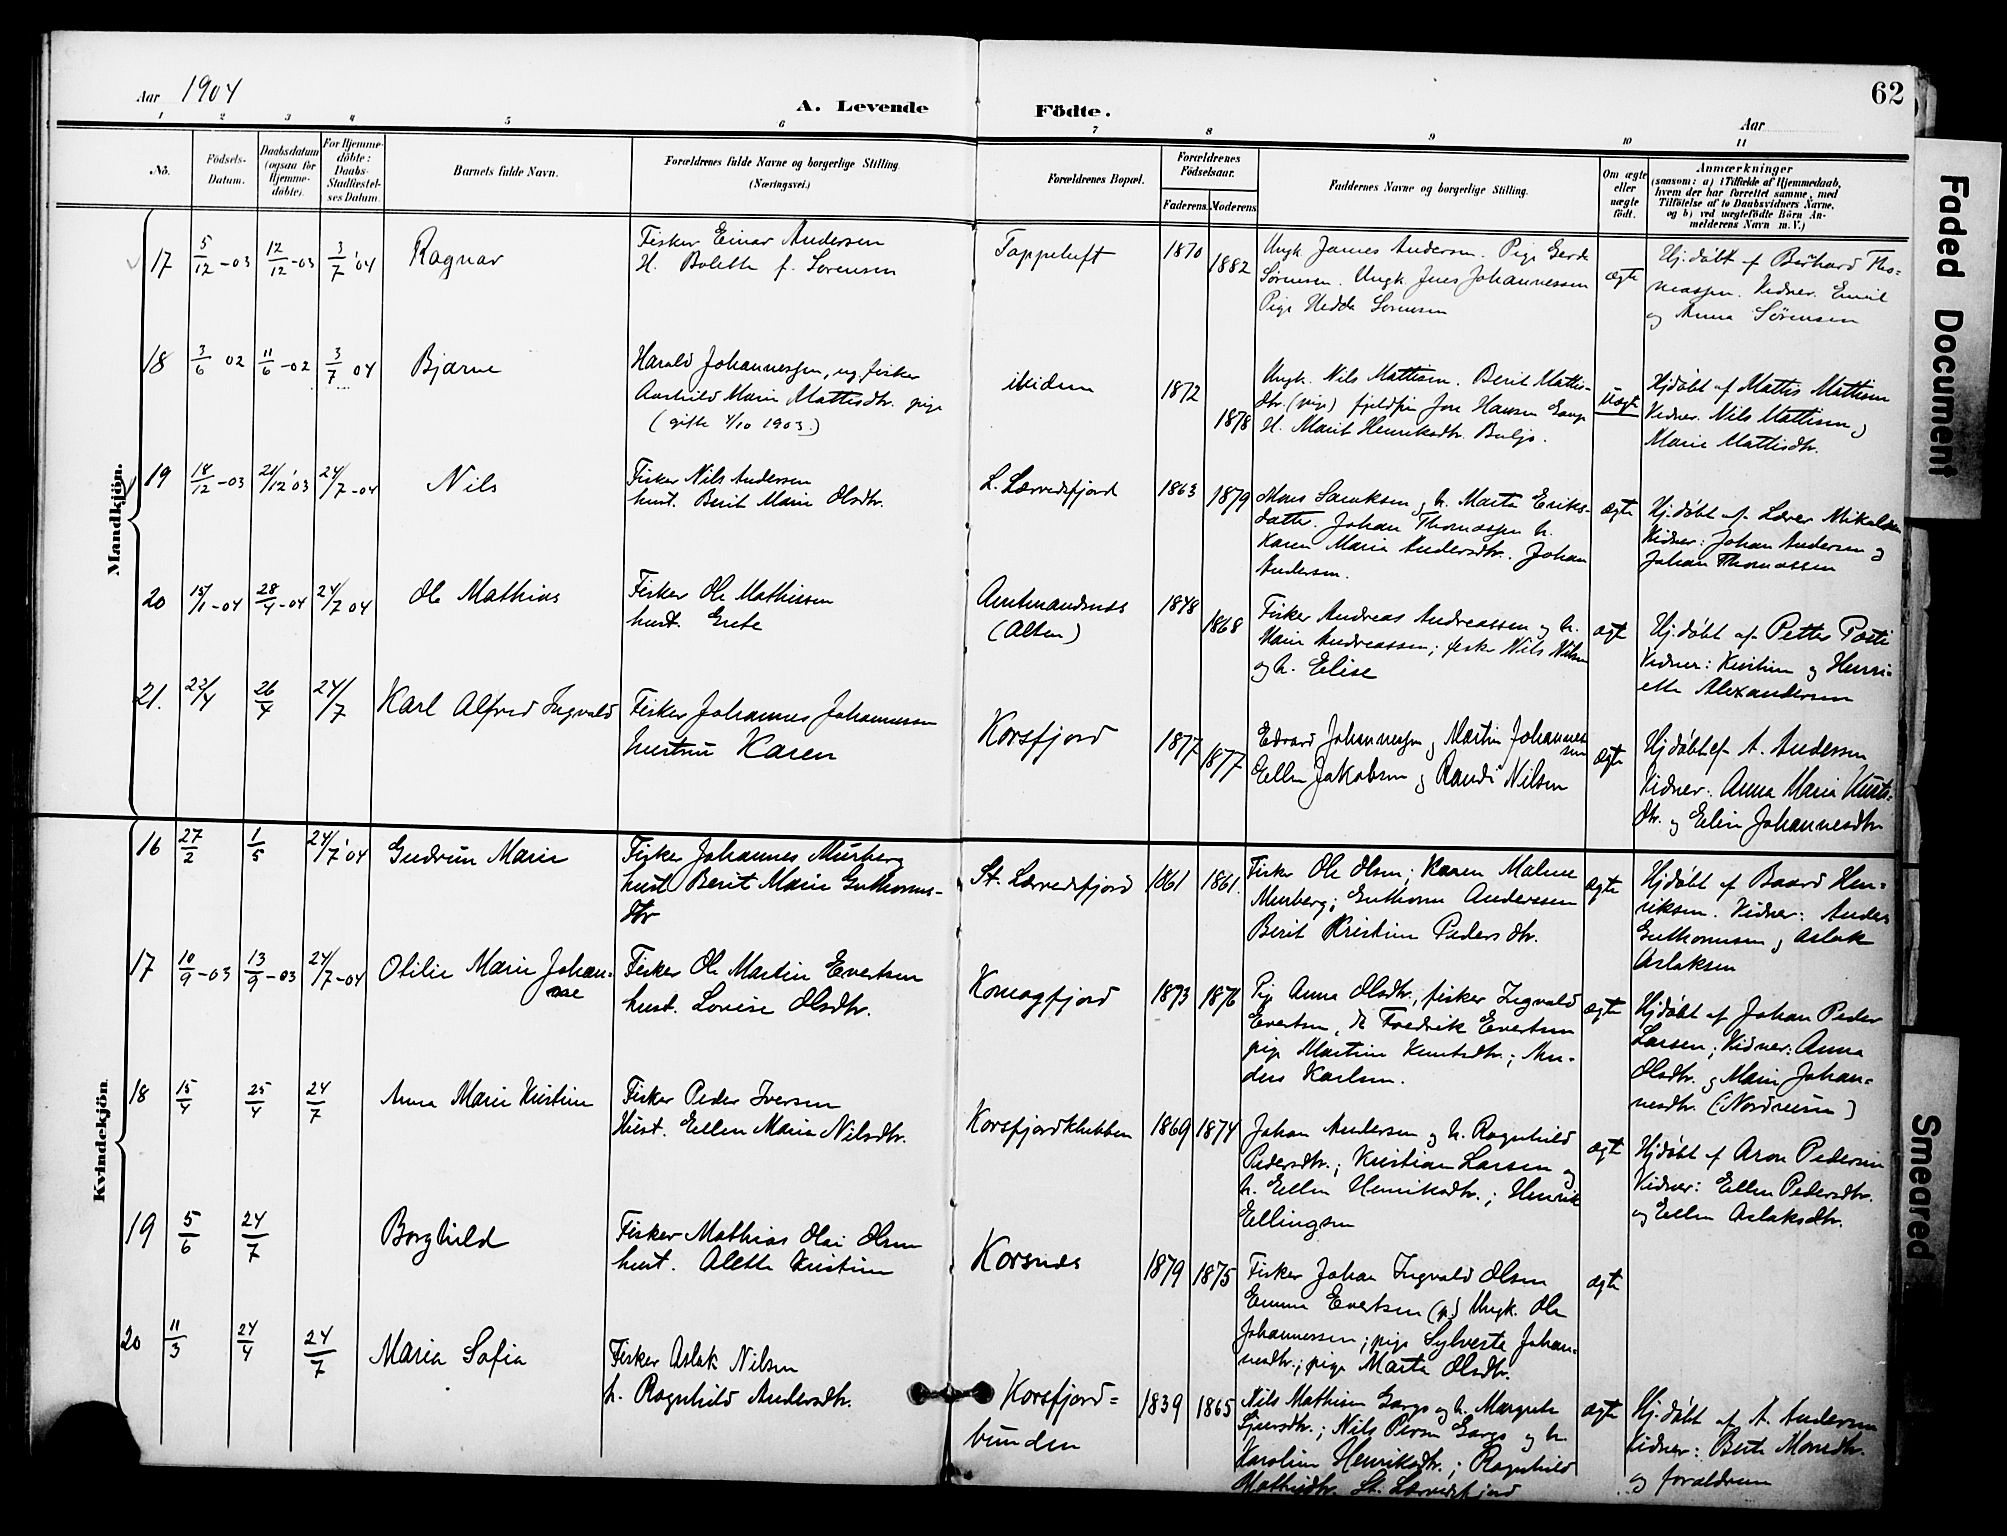 Aar 1904
A. Levende Födte.
62
Aar
1 2 3 4 5 6 7 8 9 10 11
No.
Födsels-
Datum.
Daabsdatum
(ogsaa for
Hjemme-
döbte).
For Hjemme-
döbte:
Daabs-
Stadfæstel-
ses Datum.
Barnets fulde Navn.
Forældrenes fulde Navne og borgerlige Stilling.
(Næringsvei.)
Forældrenes Bopæl.
Forældrenes
Födselsaar.
Faderens.
Moderens.
Faddernes Navne og borgerlige Stilling.
Om ægte
eller
uægte
födt.
Anmærkninger
(saasom: a) i Tilfælde af Hjemmedaab,
hvem der har forrettet samme, med
Tilföielse af to Daabsvidners Navne.
og b) ved uægtefödte Börn An-
melderens Navn m. V.)
Mandkjön.
17 5/12 -03 12/12 -03 3/7 '04 Ragnar
Fisker Einar Andersen
H. Bolette f. Sorensen
Tappeluft 1870 1882
Ungk James Andersen. Pige Gerda
Sörensen. Ungk Jens Johannessen
Pige Hedda Sorensen
ægte
Hj.döbt af Bernhard Tho-
massen. Vidner. Emil
og Anna Sörensen
18 3/6 02 11/6 -02 3/7 04 Bjarne
Harald Johannessen, ug. fisker
Aashild Marie Mattisdtr. pige
(gifte 4/10 1903.)
ibidem 1872 1878
Ungk. Nils Mattisen. Berit Mattis-
dtr. (pige) fjeldfin Jon Hansen Gaup
H. Marit Henriksdtr. Buljo.
uægte
Hjdöbt af Mattis Mattisen
Vidner. Nils Mattisen og
Marie Mattisdtr.
19 18/12 -03 21/12 '03 24/7 -04 Nils
Fisker Nils Andersen
hust. Berit Marie Olsdtr.
L. Lærredsfjord 1863 1879
Mons Samuksen og h. Marta Eriks-
datter. Johan Thomassen h.
Karen Maria Andersdtr. Johan
Andersen.
ægte
Hj.döbt af Lærer Mikalsen
Vidner: Johan Andersen og
Johan Thomassen
20 15/1 -04 28/4 -04 24/7 04 Ole Mathias
Fisker Ole Mathissen
hust. Grete
Amtmandsnes
(Alten)
1848 1868
Fisker Andreas Andreassen og h.
Marie Andreassen; fisker Nils Nilsen
og h. Elise
ægte
Hj.döbt af Petter Posti
Vidner: Kristine og Henri-
ette Alexandersen
21. 22/4 26/4 24/7 Karl Alfred Ingvald
Fisker Johannes Johannessen
hustru Karen
Korsfjord 1877 1877
Edvard Johannessen og Martin Johannes
sen
Ellen Jakobsen og Randi Nilsen
ægte
Hjdöbt af A. Andersen
Vidner: Anna Maria Knuts-
dtr. og Elen Johannesdtr
Kvindekjön.
16 27/2 1/5 24/7 '04 Gudrun Marie
Fisker Johannes Murberg
hust Berit Marie Guthorms-
dtr
St. Lærredsfjord 1861 1861.
Fisker Ole Olsen; Karen Malene
Murberg; Guthorm Anderssen
Berit Kristine Pedersdtr.
ægte
Hjdöbt af Baard Hen-
riksen. Vidner: Anders
Guthormsen og Aslak
Aslaksen
17 10/9 -03 13/9 -03 24/7 -04 Otilie Marie Johan-
ne
Fisker Ole Martin Evertsen
hust. Lovise Olsdtr.
Komagfjord 1873 1876
Pige Anna Olsdtr, fisker Ingvald
Evertsen, do Fredrik Evertsen
pige Martine Knutsdtr; An-
ders Karlsen.
ægte
Hjdöbt af Johan Peder
Larsen; Vidner: Anna
Olsdtr. og Marie Johan-
nesdtr. (Nordreisen)
18 15/4 25/4 24/7 Anna Marie Kristine
Fisker Peder Iversen
Hust. Ellen Maria Nilsdtr.
Korsfjordklubben 1869 1874
Johan Andersen og h. Ragnhild
Pedersdtr.; Kristian Larsen og
h. Ellen Henriksdtr.; Henrik
Ellingsen
ægte
Hjdöbt af Aron Pedersen
Vidner: Ellen Pedersdtr.
og Ellen Aslaksdtr.
19 5/6 24/7 Borghild
Fisker Mathias Olai Olsen
hust. Alette Kristine
Korsnes 1879 1875
Fisker Johan Ingvald Olsen
Emma Evertsen (p) Ungk. Ole
Johannessen; pige Sylvesta Johan-
nesdtr.; pige Marta Olsdtr.
ægte
20 11/3 24/4 24/7 Maria Sofia
Fisker Aslak Nilsen
h. Ragnhild Andersdtr.
Korsfjord-
bunden
1839 1865
Nils Mathisen Gargo og h. Margrete
Nils Persen Gargo og h.
Karoline Henriksdtr.; Ragnhild
Mathisdtr. St. Lærredsfjord
ægte
Hj.döbt af A. Andersen
Vidner: Berte Monsdtr.
og forældrene
Faded Document
Smeared